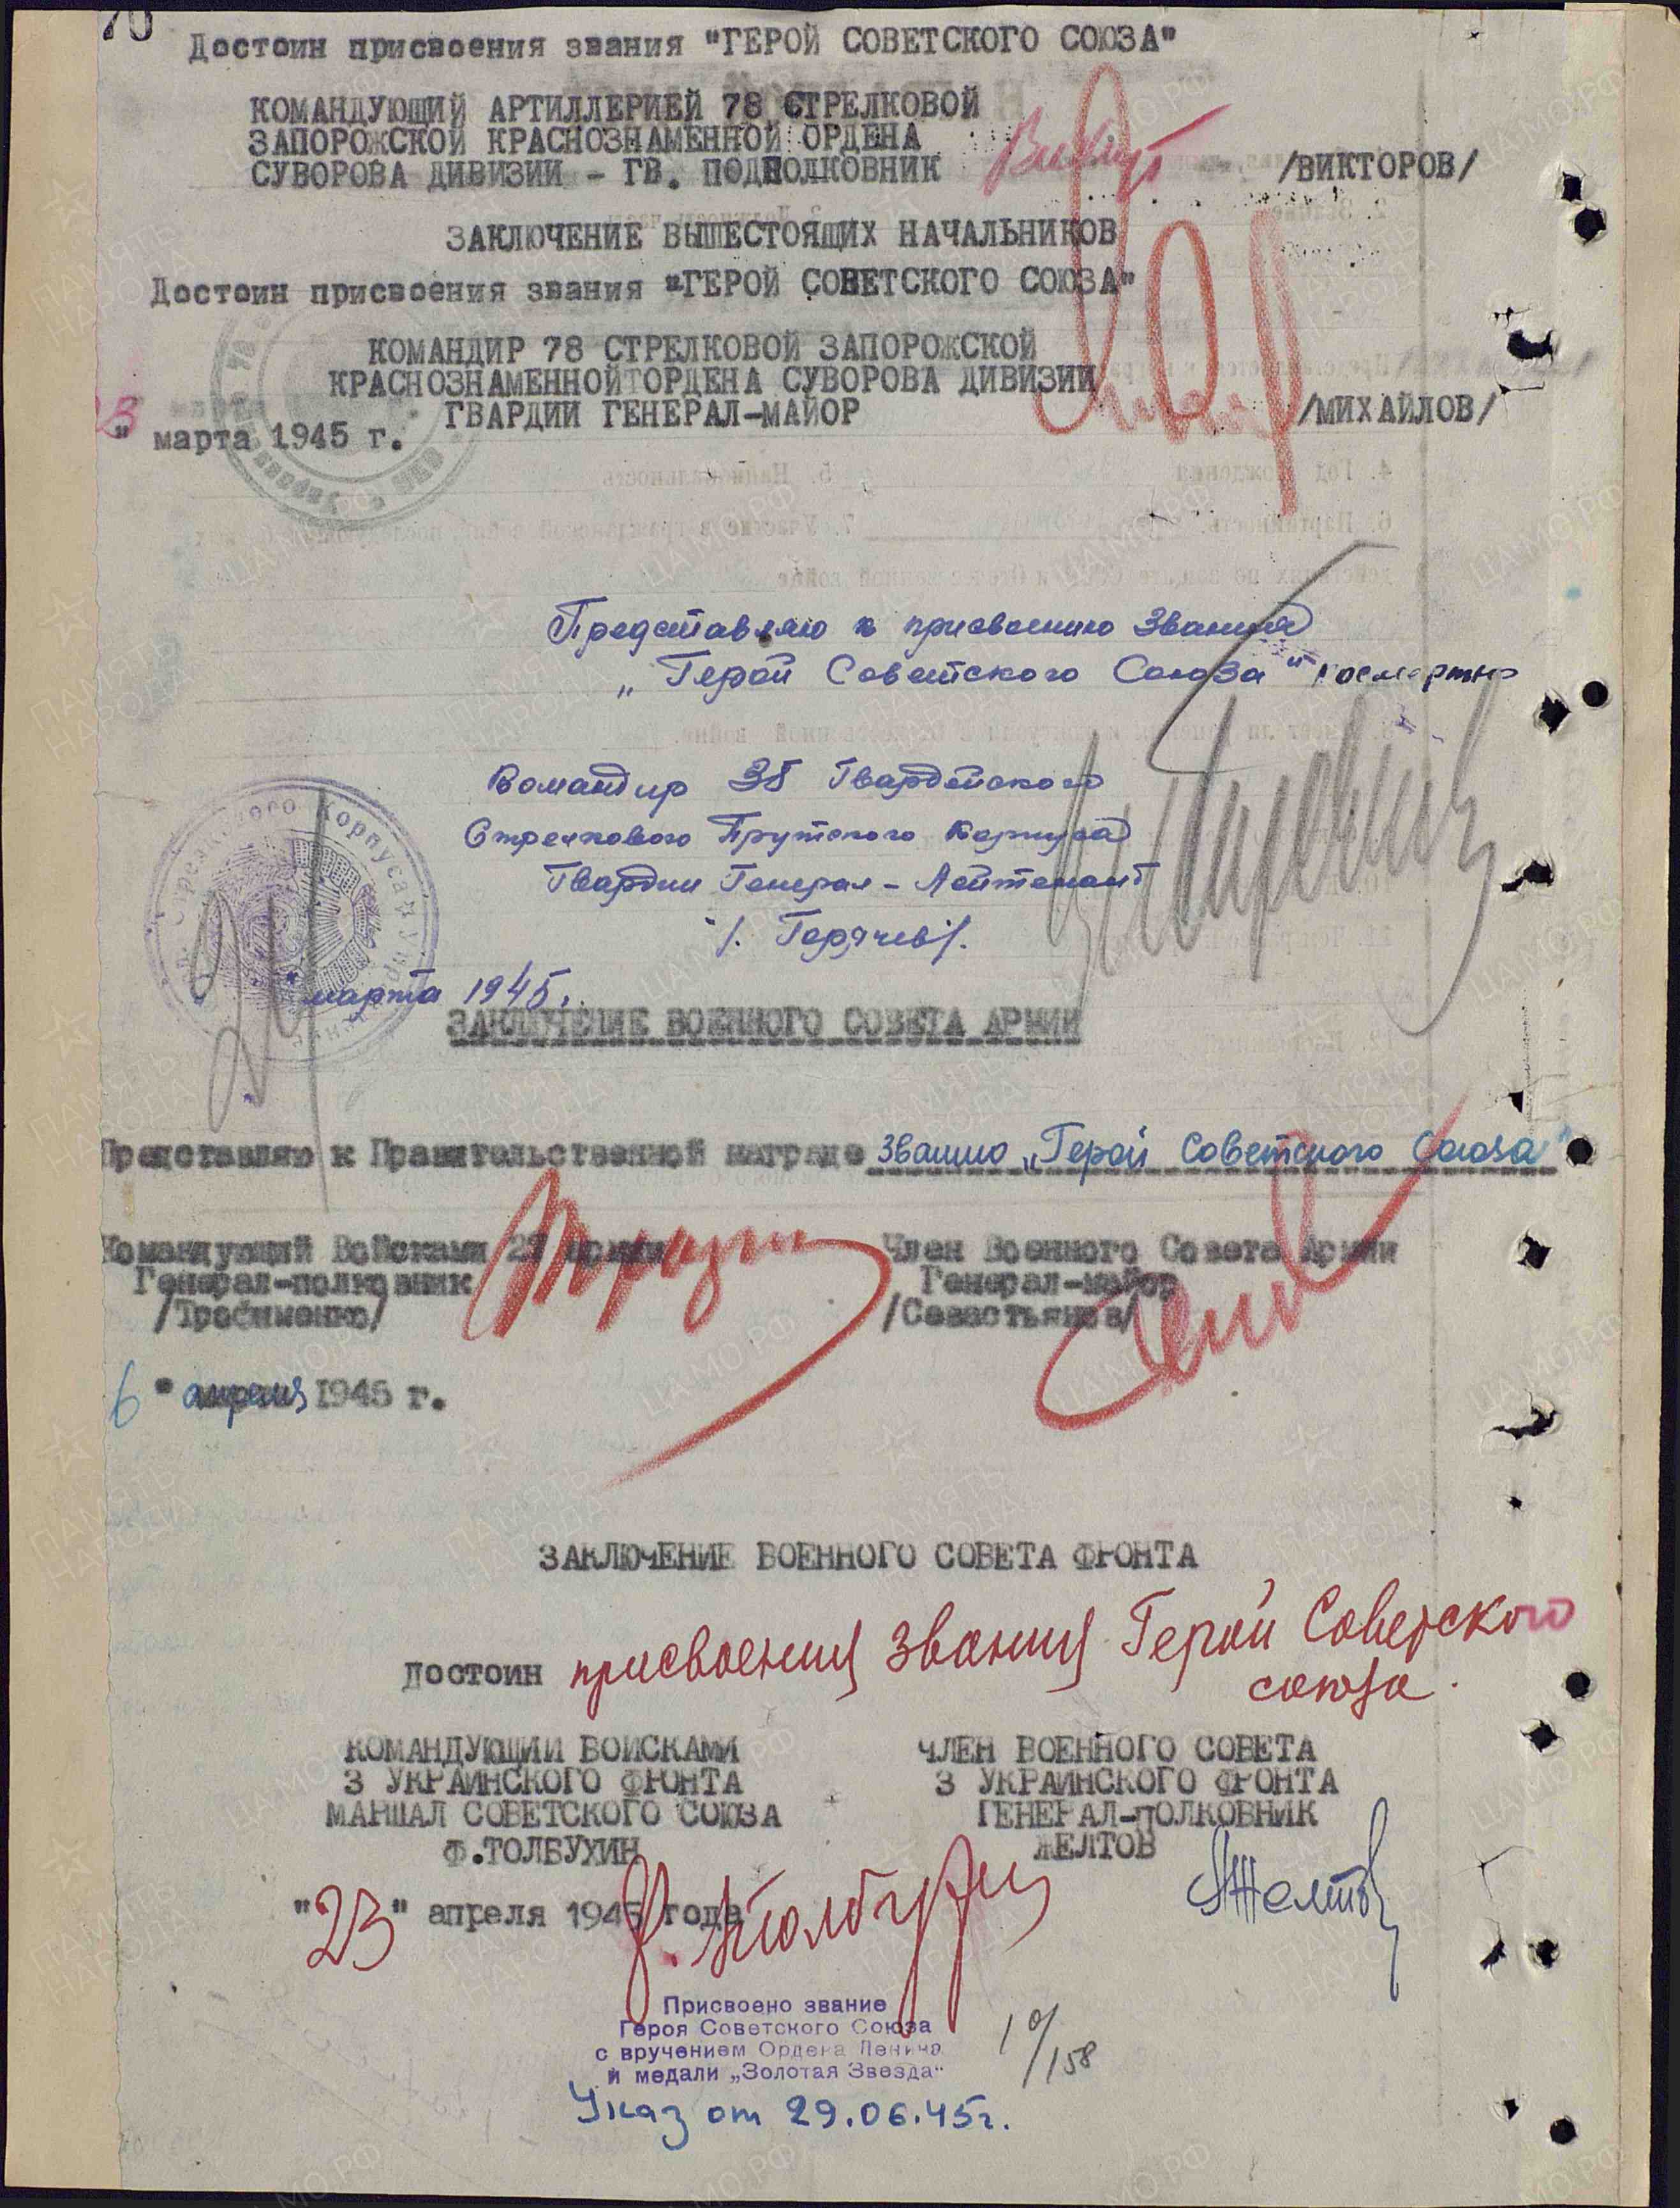 70
Достоин присвоения звания "ГЕРОЙ СОВЕТСКОГО СОЮЗА"
КОМАНДУЮЩИЙ АРТИЛЛЕРИЕЙ 78 СТРЕЛКОВОЙ
ЗАПОРОЖСКОЙ КРАСНОЗНАМЕННОЙ ОРДЕНА
СУВОРОВА ДИВИЗИИ - ГВ. ПОДПОЛКОВНИК /ВИКТОРОВ/
ЗАКЛЮЧЕНИЕ ВЫШЕСТОЯЩИХ НАЧАЛЬНИКОВ
Достоин присвоения звания "ГЕРОЙ СОВЕТСКОГО СОЮЗА"
КОМАНДИР 78 СТРЕЛКОВОЙ ЗАПОРОЖСКОЙ
КРАСНОЗНАМЕННОЙ ОРДЕНА СУВОРОВА ДИВИЗИИ
ГВАРДИИ ГЕНЕРАЛ-МАЙОР /МИХАЙЛОВ/
" марта 1945 г.
Представляю к присвоению Звания
„Герой Советского Союза" посмертно
Командир 35 Гвардейского
Стрелкового Прутского Корпуса
Гвардии Генерал-Лейтенант
/. Горячев/.
марта 1945.
ЗАКЛЮЧЕНИЕ ВОЕННОГО СОВЕТА АРМИИ
Представляю к Правительственной награде званию „Герой Советского Союза"
Командующий Войсками 27 армии Член Военного Совета Армии
Генерал-полковник Генерал-майор
/Трофименко/ /Севастьянов/
6 " апреля 1945 г.
ЗАКЛЮЧЕНИЕ ВОЕННОГО СОВЕТА ФРОНТА
Достоин присвоения звания Герой Советского
союза.
КОМАНДУЮЩИЙ ВОЙСКАМИ ЧЛЕН ВОЕННОГО СОВЕТА
3 УКРАИНСКОГО ФРОНТА 3 УКРАИНСКОГО ФРОНТА
МАРШАЛ СОВЕТСКОГО СОЮЗА ГЕНЕРАЛ-ПОЛКОВНИК
Ф.ТОЛБУХИН ЖЕЛТОВ
"23" апреля 1945 года Ф. Толбухин АЖелтов
Присвоено звание
Героя Советского Союза
с вручением Ордена Ленина
и медали „Золотая Звезда"
10/158
Указ от 29.06.45г.